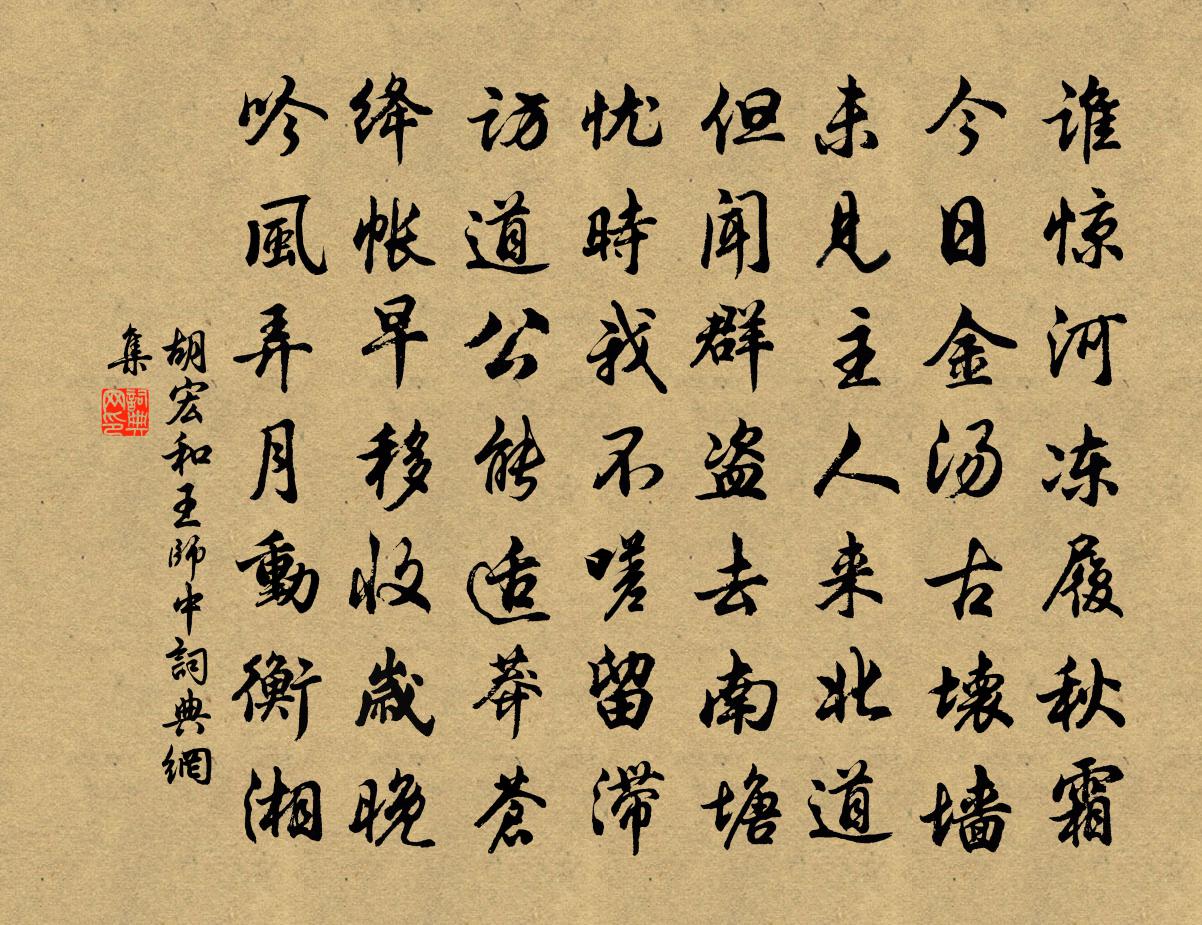 谁惊河冻履秋霜
今日金汤古坏墙
未见主人来北道
但闻群盗去南塘
忧時我不嗟留滞
访道公能适莽苍
绛帐早移收歲晚
吟風弄月動衡湘
胡宏和王師中詞典網
集
詞典
网印